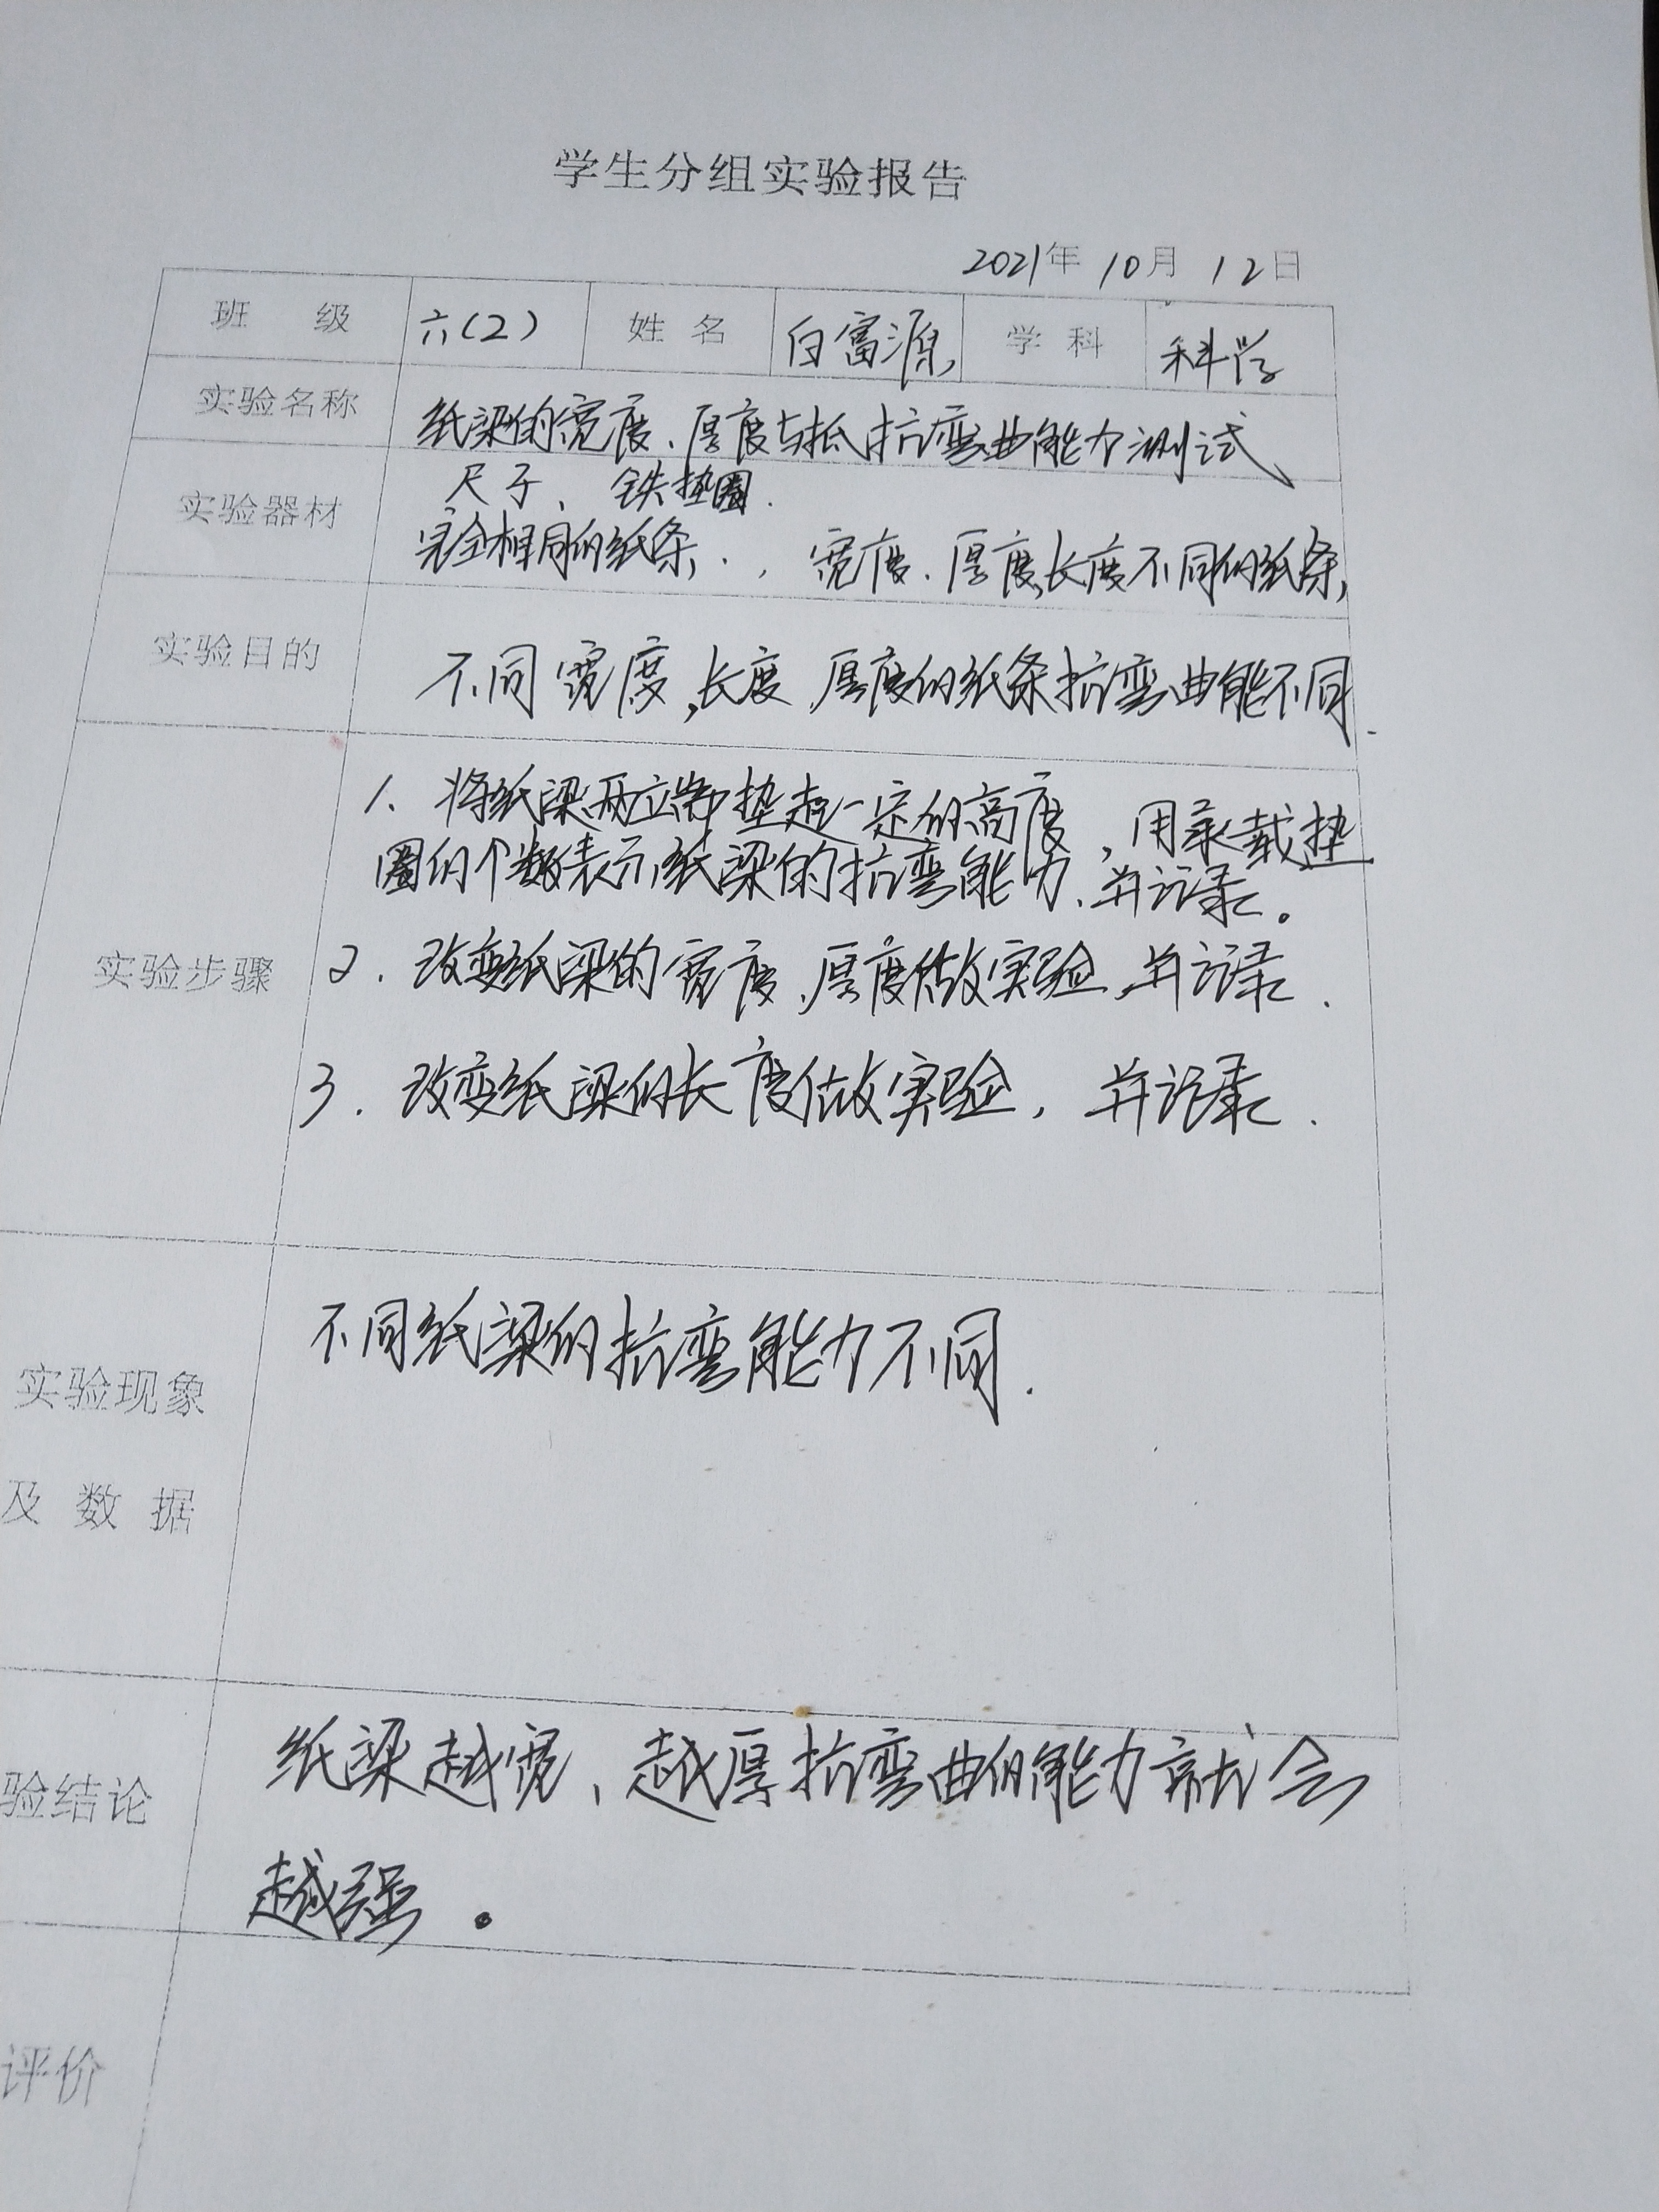 学生分组实验报告
2021年 10月 12日
班 级 六(2) 姓 名 白富源 学 科 科学
实验名称 纸梁的宽度、厚度与抵抗弯曲能力测试
尺子、铁垫圈.
实验器材
完全相同的纸条, 宽度、厚度,长度不同的纸条,
实验目的 不同宽度,长度,厚度的纸条抗弯曲能不同.
1、将纸梁两立端垫起一定的高度,用承载垫
圈的个数表示纸梁的抗弯能力、并记录。
实验步骤 2. 改变纸梁的宽度,厚度做实验,并记录.
3. 改变纸梁的长度做实验, 并记录.
不同纸梁的抗弯能力不同.
实验现象
及 数 据
纸梁越宽、越厚抗弯曲的能力就会
验结论
越强。
评价